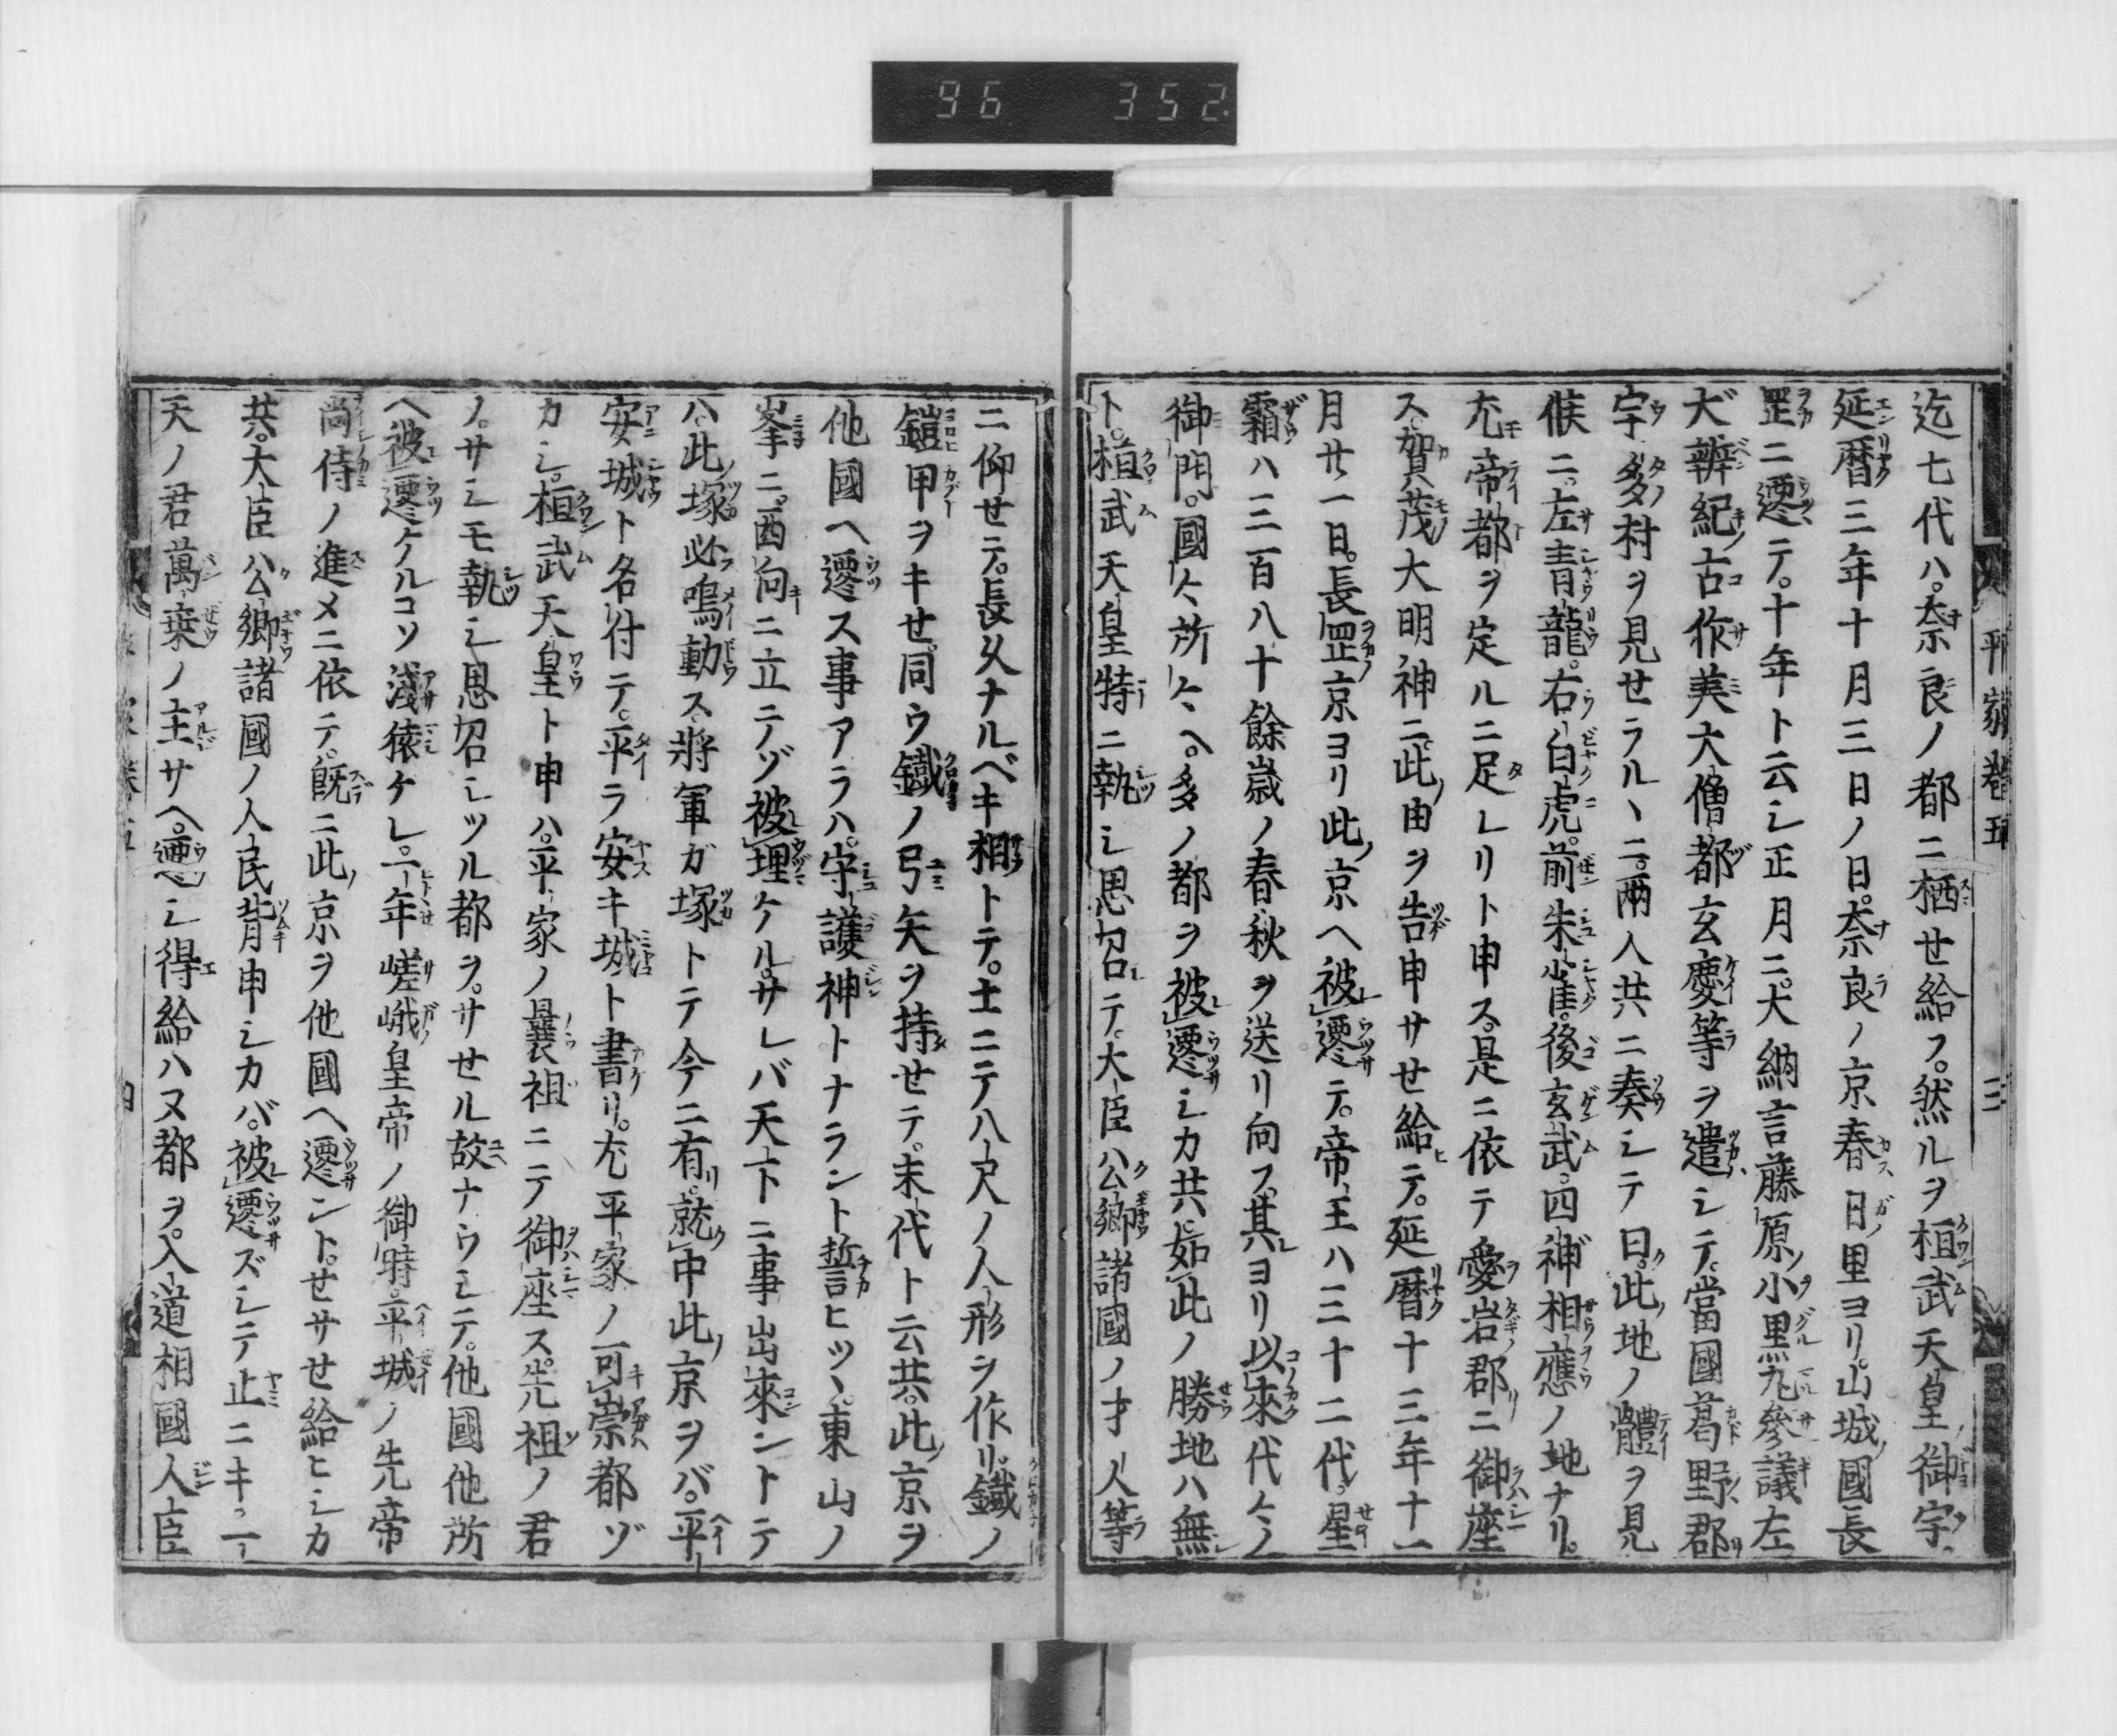 96 352
平家巻五 三
迄七代ハ。奈良ノ都ニ栖せ給フ。然ルヲ桓武天皇ノ御宇。
延暦三年十月三日ノ日。奈良ノ京春日里ヨリ。山城ノ國長
罡ニ遷テ。十年ト云シ正月ニ。大納言藤原ノ小黒丸參議左
大辨紀古作美大僧都玄慶等ヲ遣シテ。當國葛野郡
宇多村ヲ見せラルヽニ。兩人共ニ奏シテ曰。此地ノ體ヲ見
候ニ。左青龍。右白虎。前朱雀。後玄武。四神相應ノ地ナリ。
尤帝都ヲ定ルニ足レリト申ス。是ニ依テ愛宕郡ニ御座
ス。賀茂大明神ニ。此由ヲ告申サせ給テ。延暦十三年十一
月廿一日。長罡京ヨリ此京ヘ被遷テ。帝王ハ三十二代。星
霜ハ三百八十餘歳ノ春秋ヲ送リ向フ。其ヨリ以來代々ノ
御門。國々所々ヘ。多ノ都ヲ被遷シカ共。如此ノ勝地ハ無
ト。桓武天皇特ニ執シ思召テ。大臣公卿諸國ノ才人等
ニ仰せテ。長久ナルベキ相トテ。土ニテ八尺ノ人形ヲ作リ。鐵ノ
鎧甲ヲキせ。同ウ鐵ノ弓矢ヲ持せテ。末代ト云共。此京ヲ
他國ヘ遷ス事アラハ。守護神トナラント誓ヒツヽ。東山ノ
峯ニ。西向ニ立テゾ被埋ケル。サレバ天下ニ事出來ントテ
ハ。此塚必鳴動ス。將軍ガ塚トテ今ニ有。就中此京ヲバ。平
安城ト名付テ。平ラ安キ城ト書リ。尤平家ノ可崇都ゾ
カシ。桓武天皇ト申ハ。平家ノ曩祖ニテ御座ス。先祖ノ君
ノ。サシモ執シ思召シツル都ヲ。サせル故ナウシテ。他國他所
ヘ被遷ケルコソ淺猿ケレ。一年嵯峨皇帝ノ御時。平城ノ先帝
尚侍ノ進メニ依テ。既ニ此京ヲ他國ヘ遷ント。せサせ給ヒシカ
共。大臣公卿諸國ノ人民背申シカバ。被遷ズシテ止ニキ。一
天ノ君萬乗ノ主サヘ。遷シ得給ハヌ都ヲ。入道相國人臣
四